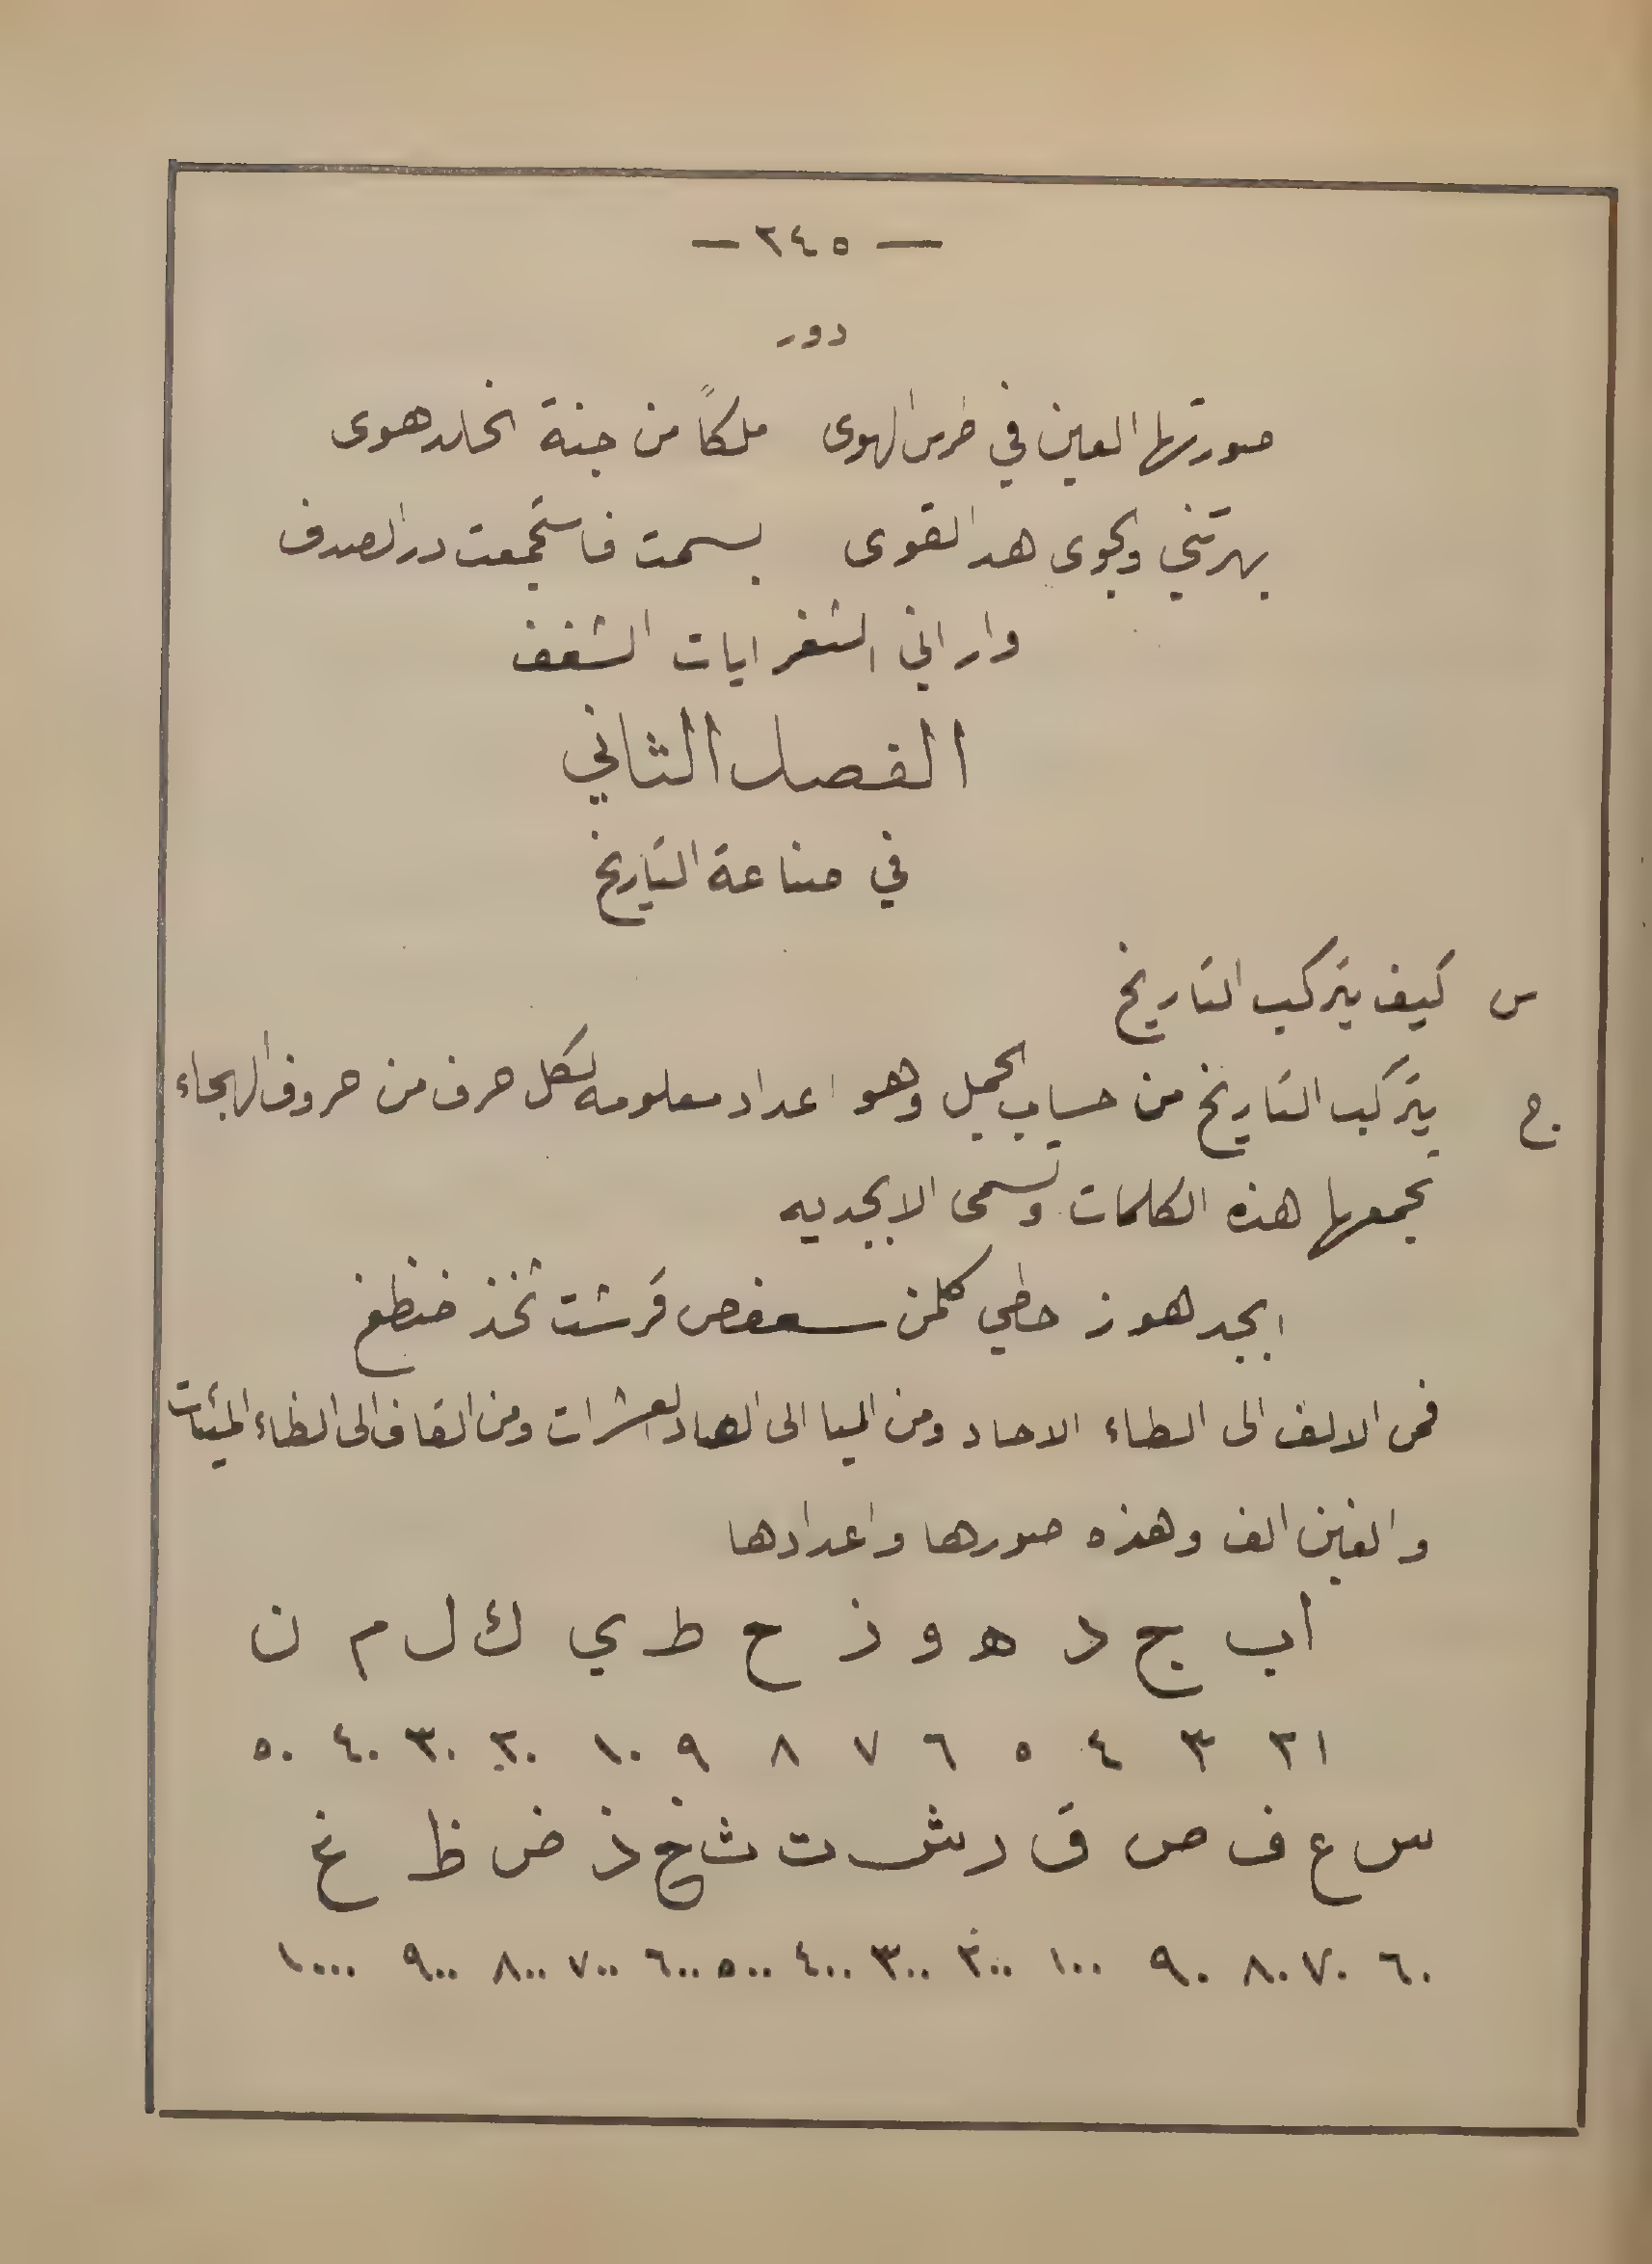 — ٢٤٥ —
دور
صورتها العين في طرس الهوى ملكاً من جنة الخلد هوى
بهرتني والجوى هد القوى بسمت فاستجمعت در الصدف
واراني الثغر ايات الشغف
الفصل الثاني
في صناعة التاريخ
س كيف يتركب التاريخ
ج يتركب التاريخ من حساب الجمل وهو اعداد معلومه لكل حرف من حروف الهجاء
تجمعها هذه الكلمات وتسمى الابجديه
ابجد هوز حطي كلمن سعفص قرشت ثخذ ضظغ
فمن الالف الى الطاء الاحاد ومن اليا الى الصاد العشرات ومن القاف الى الظاء المئات
والغين الف وهذه صورها واعدادها
ا ب ج د ه و ذ ح ط ي ك ل م ن
١ ٢ ٣ ٤ ٥ ٦ ٧ ٨ ٩ ١٠ ٢٠ ٣٠ ٤٠ ٥٠
س ع ف ص ق ر ش ت ث خ ذ ض ظ غ
٦٠ ٧٠ ٨٠ ٩٠ ١٠٠ ٢٠٠ ٣٠٠ ٤٠٠ ٥٠٠ ٦٠٠ ٧٠٠ ٨٠٠ ٩٠٠ ١٠٠٠